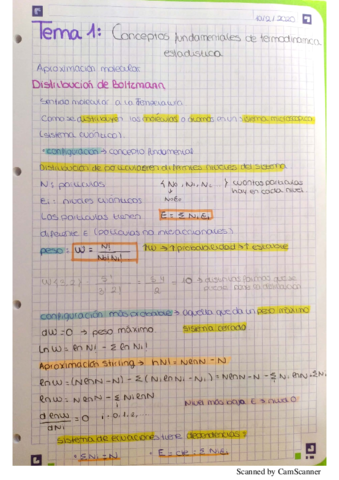 10/2/2020
Tema 1: Conceptos fundamentales de termodinámica
estadística
Aproximación molecular
Distribución de Boltzmann
Sentido molecular a la temperatura
Como se distribuyen las moléculas o átomos en un sistema macroscópico
(sistema cuántico).
• configuración → concepto fundamental
distribución de partículas en diferentes niveles del sistema
N: partículas {N₀, N₁, N₂ ...} cuantas partículas
Ei: niveles cuánticos hay en cada nivel.
Las partículas tienen E = Σ Ni Ei
diferente E (partículas no interaccionantes)
peso: W = N! / N₀! N₁! ↑W → ↑ probabilidad →
W(3,2) = 5! / 3! 2! = 5·4 / 2 = 10 →
configuración más probable → aquella que da un peso máximo
dW = 0 → peso máximo sistema cerrado
ln W = ln N! - Σ ln Ni!
Aproximación Stirling → ln N! = N ln N - N
ln W = (N ln N - N) - Σ (Ni ln Ni - Ni) = N ln N - N - Σ Ni ln Ni + Σ Ni
ln W = N ln N - Σ Ni ln Ni
d ln W / dNi = 0 i = 0, 1, 2, Nivel más bajo E → nivel 0
Sistema de ecuaciones tiene dependencias:
• Σ Ni = N • E = cte = Σ Ni Ei
Scanned by CamScanner